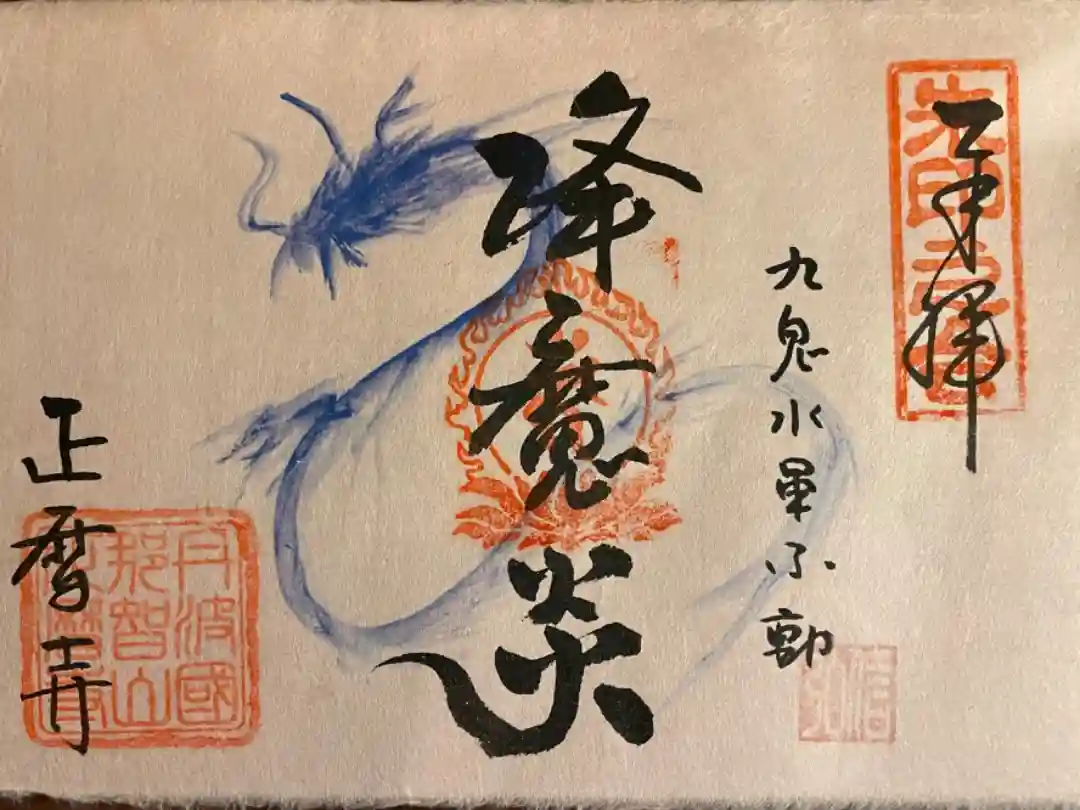 奉拝
九鬼水軍不動
降魔炎
正暦寺
丹波國
那智山